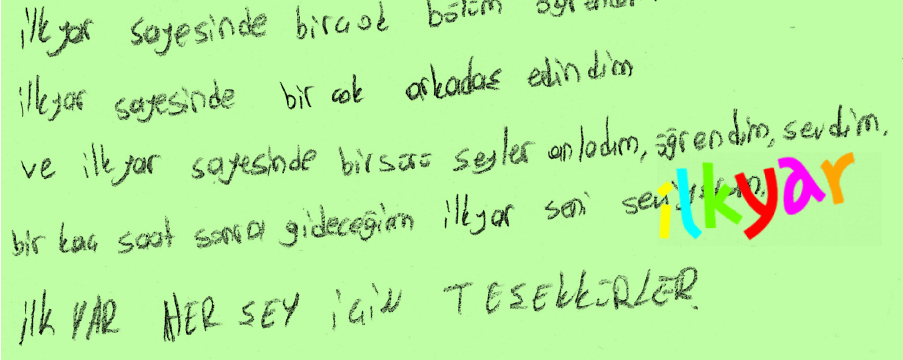 ilkyar sayesinde birçok bölüm
ilkyar sayesinde bir çok arkadaş edindim
ve ilkyar sayesinde birsürü şeyler anladım, öğrendim, sevdim.
bir kaç saat sonra gideceğim ilkyar seni
ilkyar
ilk YAR HER ŞEY İÇİN TEŞEKKÜRLER